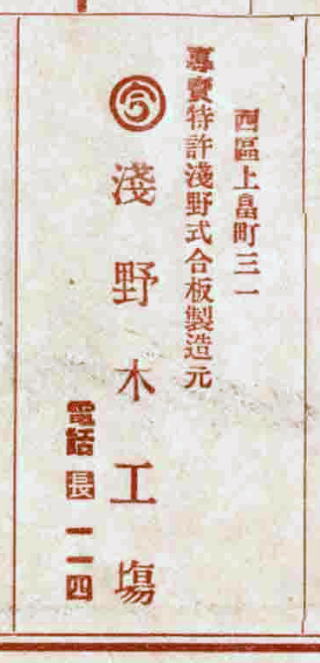 西區上畠町三一
專賣特許淺野式合板製造元
淺野木工場
電話長一一四